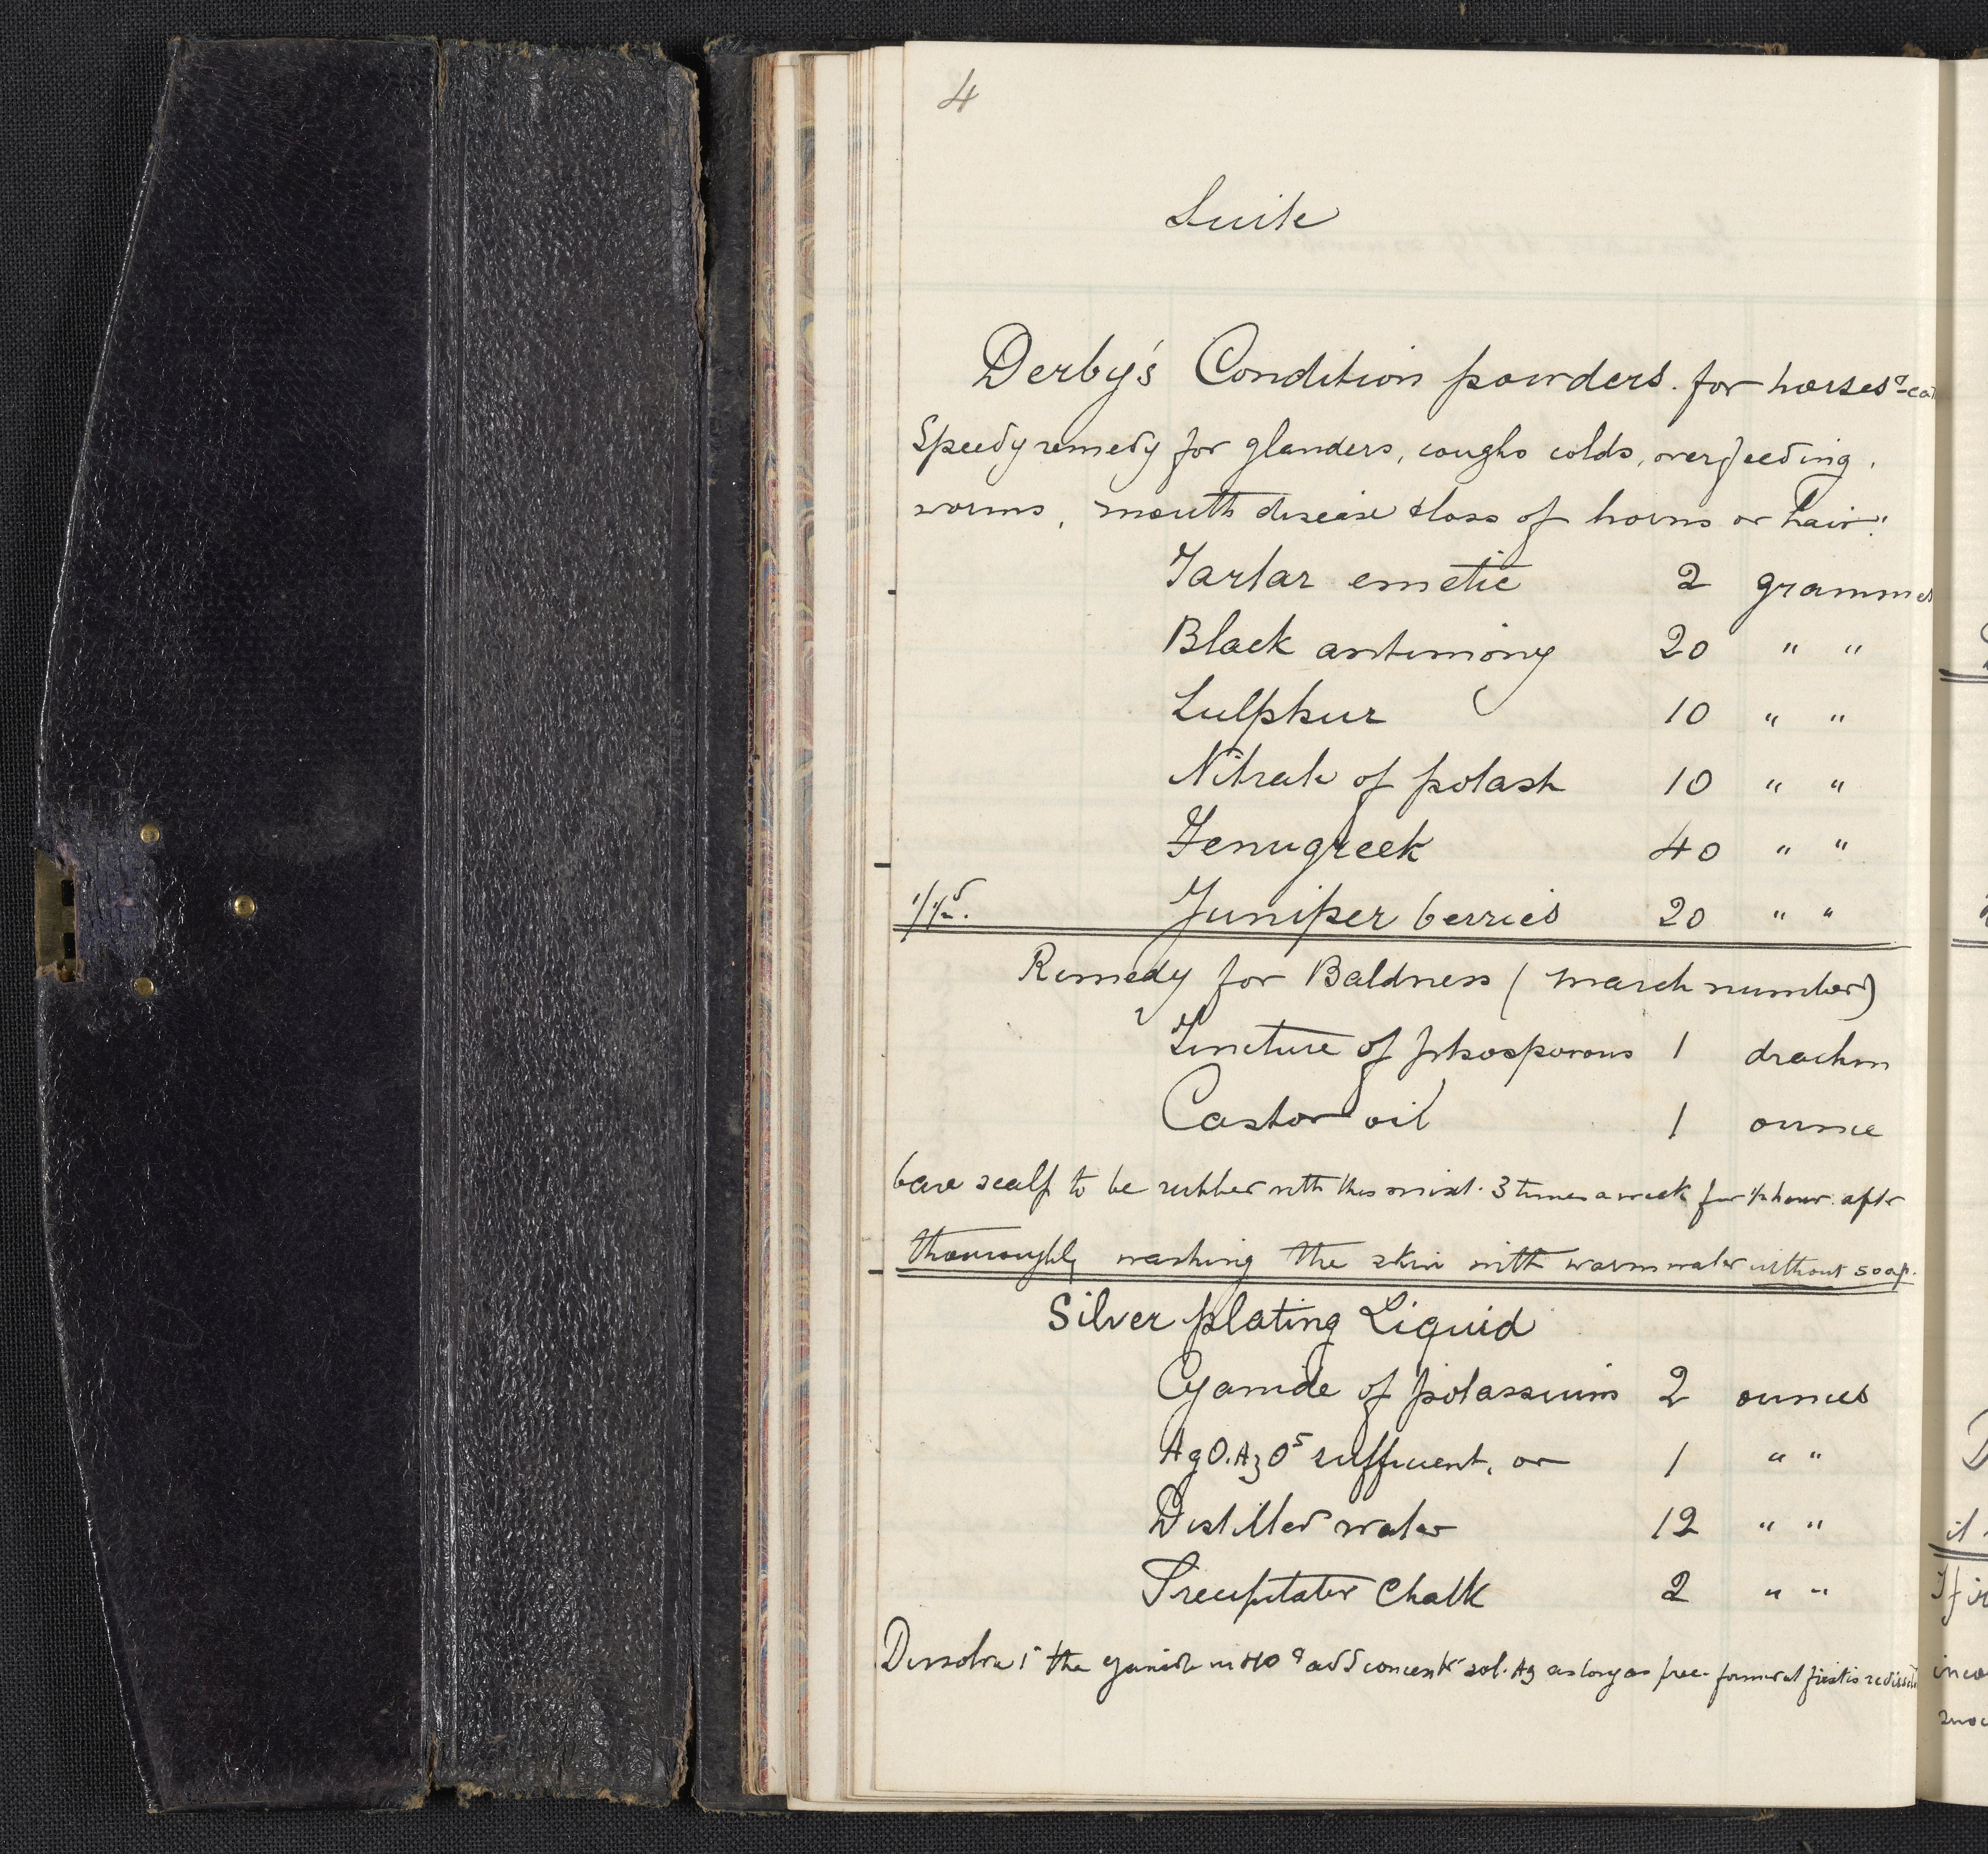 4
Suite
Derby's Condition powders. for horses &
Speedy remedy for glanders, coughs colds, overfeeding,
worms, mouth disease & loss of horns or hair.
Tartar emetic 2 grammes
Black antimony 20 " "
Sulphur 10 " "
Nitrate of potash 10 " "
Fenugreek 40 " "
Juniper berries 20 " "
Remedy for Baldness (march number)
Tincture of phosporous 1 drachm
Castor oil 1 ounce
bare scalp to be rubbed with this mixt. 3 times a week for ½ hour after
thouroughly washing the skin with warm water without soap.
Silver plating Liquid
Cyanide of potassium 2 ounces
AgO.AzO⁵ sufficient, or 1 " "
Distilled water 12 " "
Precipitated Chalk 2 " "
Dissolve the cyanide in HO & add concentd sol. Ag as long as prec. formed at first is